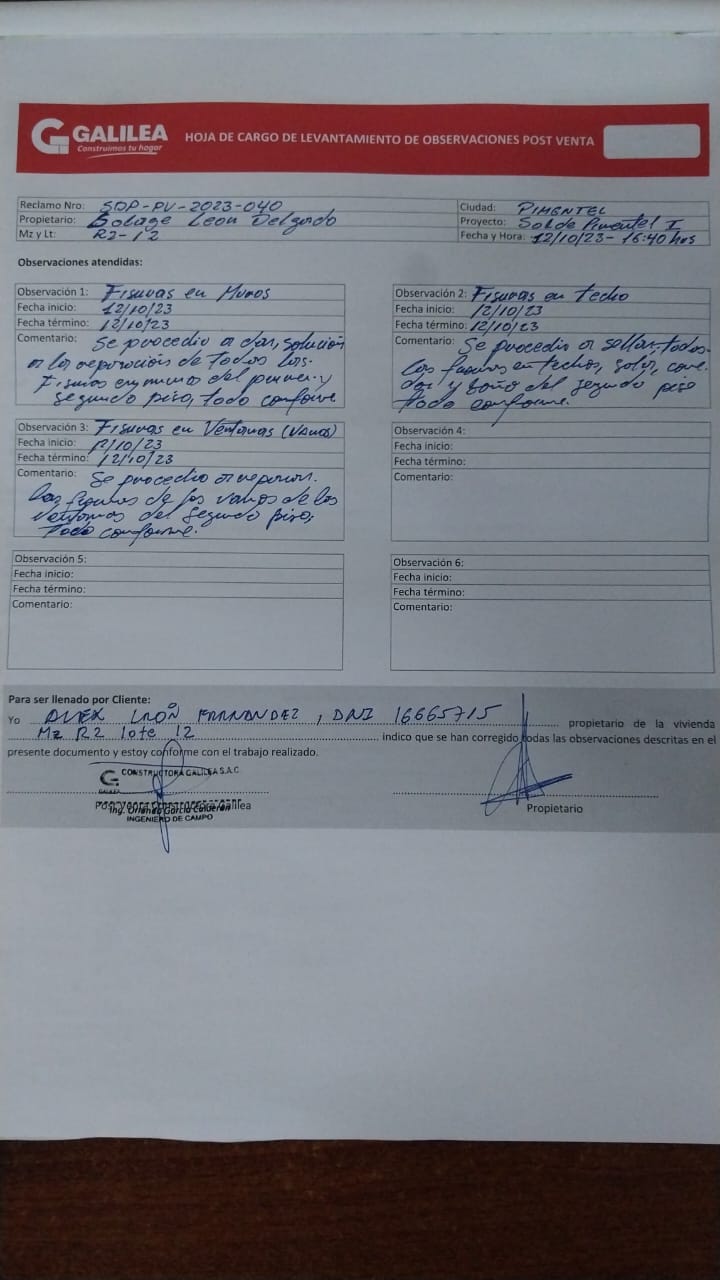 GALILEA
Construimos tu hogar
HOJA DE CARGO DE LEVANTAMIENTO DE OBSERVACIONES POST VENTA
Reclamo Nro: SDP-PV-2023-040
Propietario: Leon Delgado
Mz y Lt: R2-12
Ciudad: PIMENTEL
Proyecto: Sol de Pimentel I
Fecha y Hora: 12/10/23- 16:40 hrs
Observaciones atendidas:
Observación 1: Fisuras en Muros
Fecha inicio: 12/10/23
Fecha término: 12/10/23
Comentario: Se procedio a dar, solución
a la reparación de todos las
Fisuras en muros del primer y
segundo piso, todo conforme
Observación 2: Fisuras en techo
Fecha inicio: 12/10/23
Fecha término: 12/10/23
Comentario: Se procedio a sellar, todas
las fisuras en techos, sala,
y baño del segundo piso
todo conforme.
Observación 3: Fisuras en Ventanas (vanos)
Fecha inicio: 12/10/23
Fecha término: 12/10/23
Comentario: Se procedio a reparar.
las fisuras de los vanos de las
ventanas del segundo piso,
todo conforme.
Observación 4:
Fecha inicio:
Fecha término:
Comentario:
Observación 5:
Fecha inicio:
Fecha término:
Comentario:
Observación 6:
Fecha inicio:
Fecha término:
Comentario:
Para ser llenado por Cliente:
Yo ALEX LEÓN FERNANDEZ, DNI 16665715 propietario de la vivienda
Mz R2 lote 12 indico que se han corregido todas las observaciones descritas en el
presente documento y estoy conforme con el trabajo realizado.
CONSTRUCTORA GALILEA S.A.C
GALILEA
Post Venta Constructora Galilea
Ing. Orlando Garcia Calderón
INGENIERO DE CAMPO
Propietario